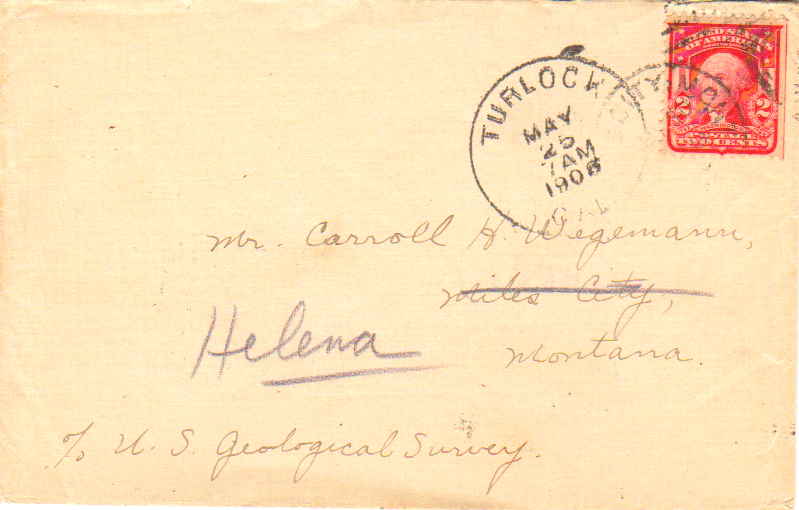 UNITED STATES
OF AMERICA
2 2
POSTAGE
TWO CENTS
TURLOCK
MAY
25
7 AM
1906
CAL
Mr. Carroll H. Wegemann,
Miles City,
Helena
Montana.
c/o U. S. Geological Survey.